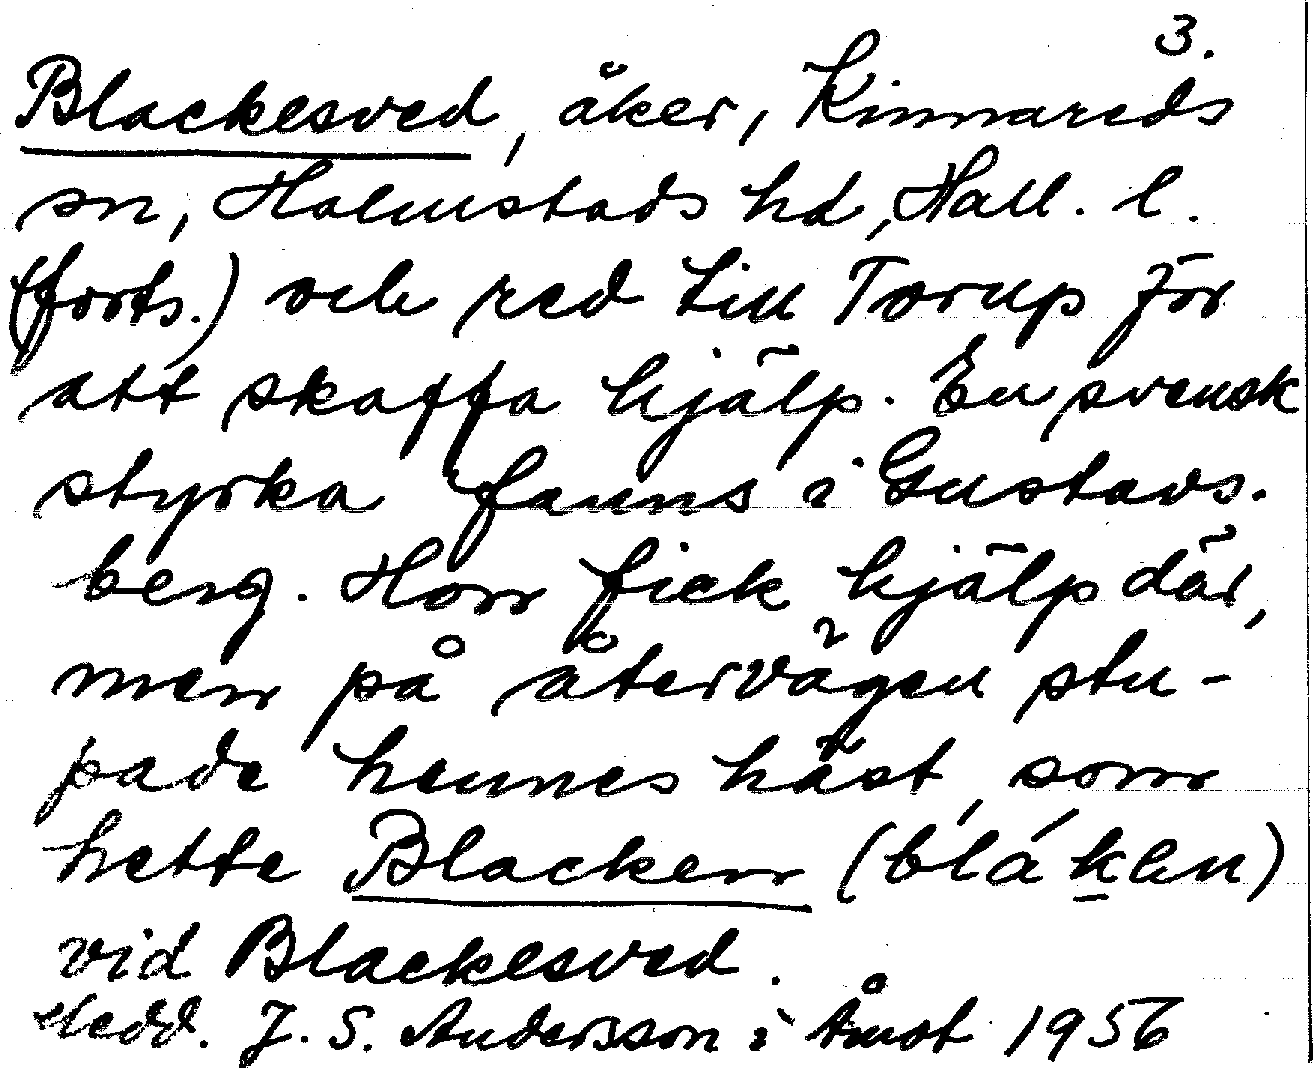 3.
Blackesved, åker, Kinnareds
sn, Halmstads hd, Hall. l.
(forts.) och red till Torup för
att skaffa hjälp. En svensk
styrka fanns i Gustavs-
berg. Hon fick hjälp där,
men på återvägen stu-
pade hennes häst, som
hette Blacken (blákken)
vid Blackesved.
Medd. J. S. Andersson i Åmot 1956